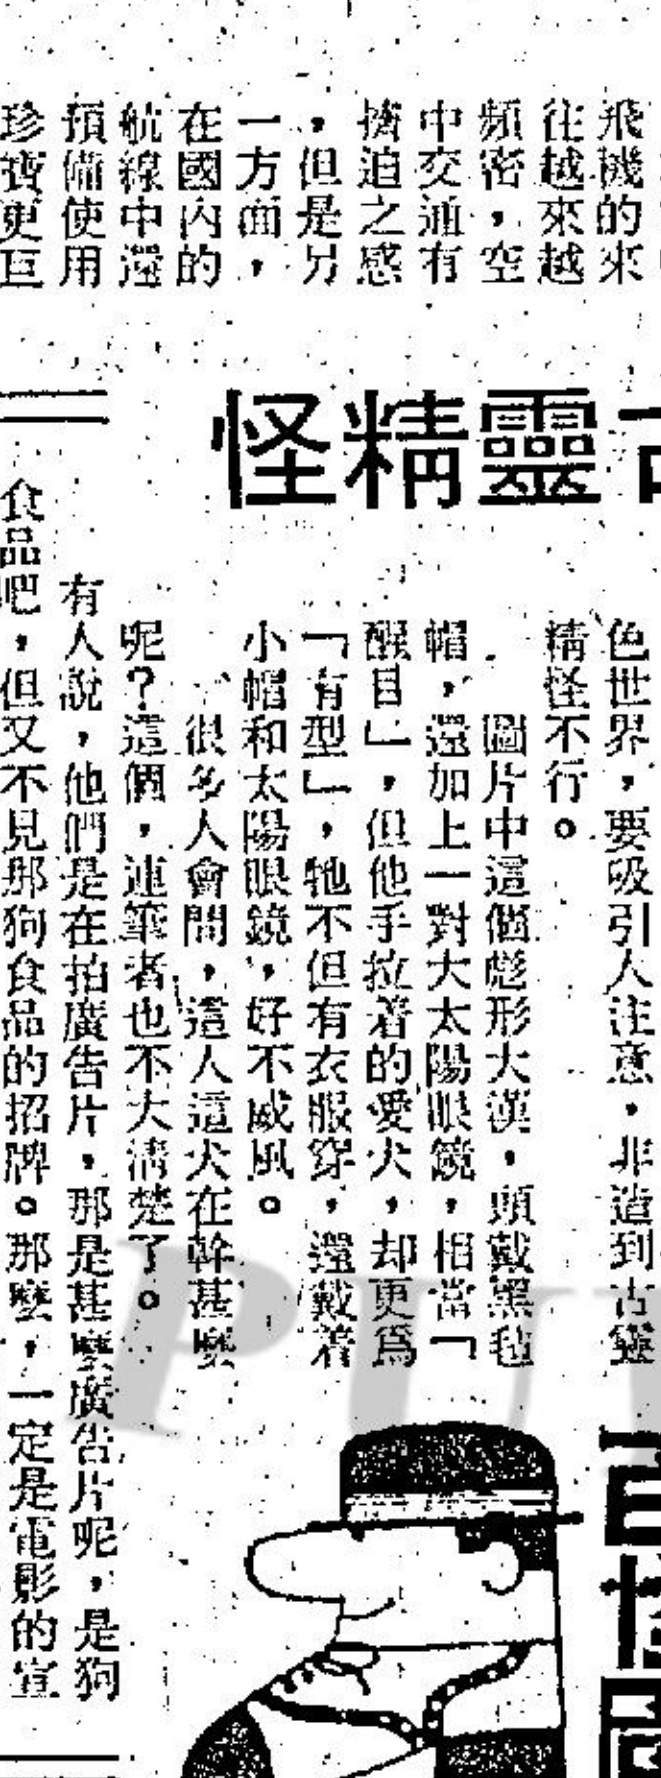 飛機的來
往越來越
頻密，空
中交通有
擠迫之感
，但是另
一方面，
在國內的
航線中還
預備使用
珍寶更巨
怪精靈古
色世界，要吸引人注意，非造到古靈
精怪不行。
圖片中這個彪形大漢，頭戴黑毡
帽，還加上一對大太陽眼鏡，相當「
醒目」，但他手拉着的愛犬，却更爲
「有型」，牠不但有衣服穿，還戴着
小帽和太陽眼鏡，好不威風。
很多人會問，這人這犬在幹甚麽
呢？這個，連筆者也不大清楚了。
有人說，他們是在拍廣告片，那是甚麽廣告片呢，是狗
食品吧，但又不見那狗食品的招牌。那麽，一定是電影的宣